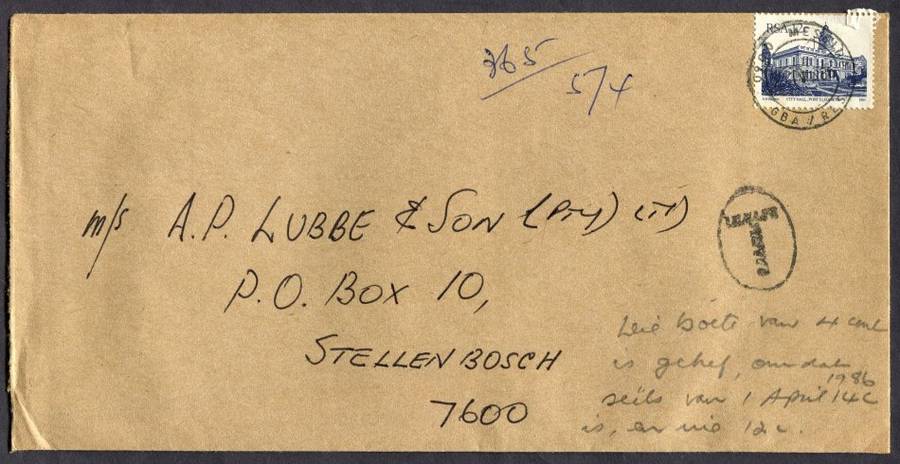 RSA 12c
CITY HALL, PORT ELIZABETH
365/574
m/s A.P. LUBBE & SON (PTY) LTD
P.O. BOX 10,
STELLENBOSCH
7600
T
boete van 4 cent
is gehef, omdat
1986
seëls van 1 April 14c
is, en nie 12c.